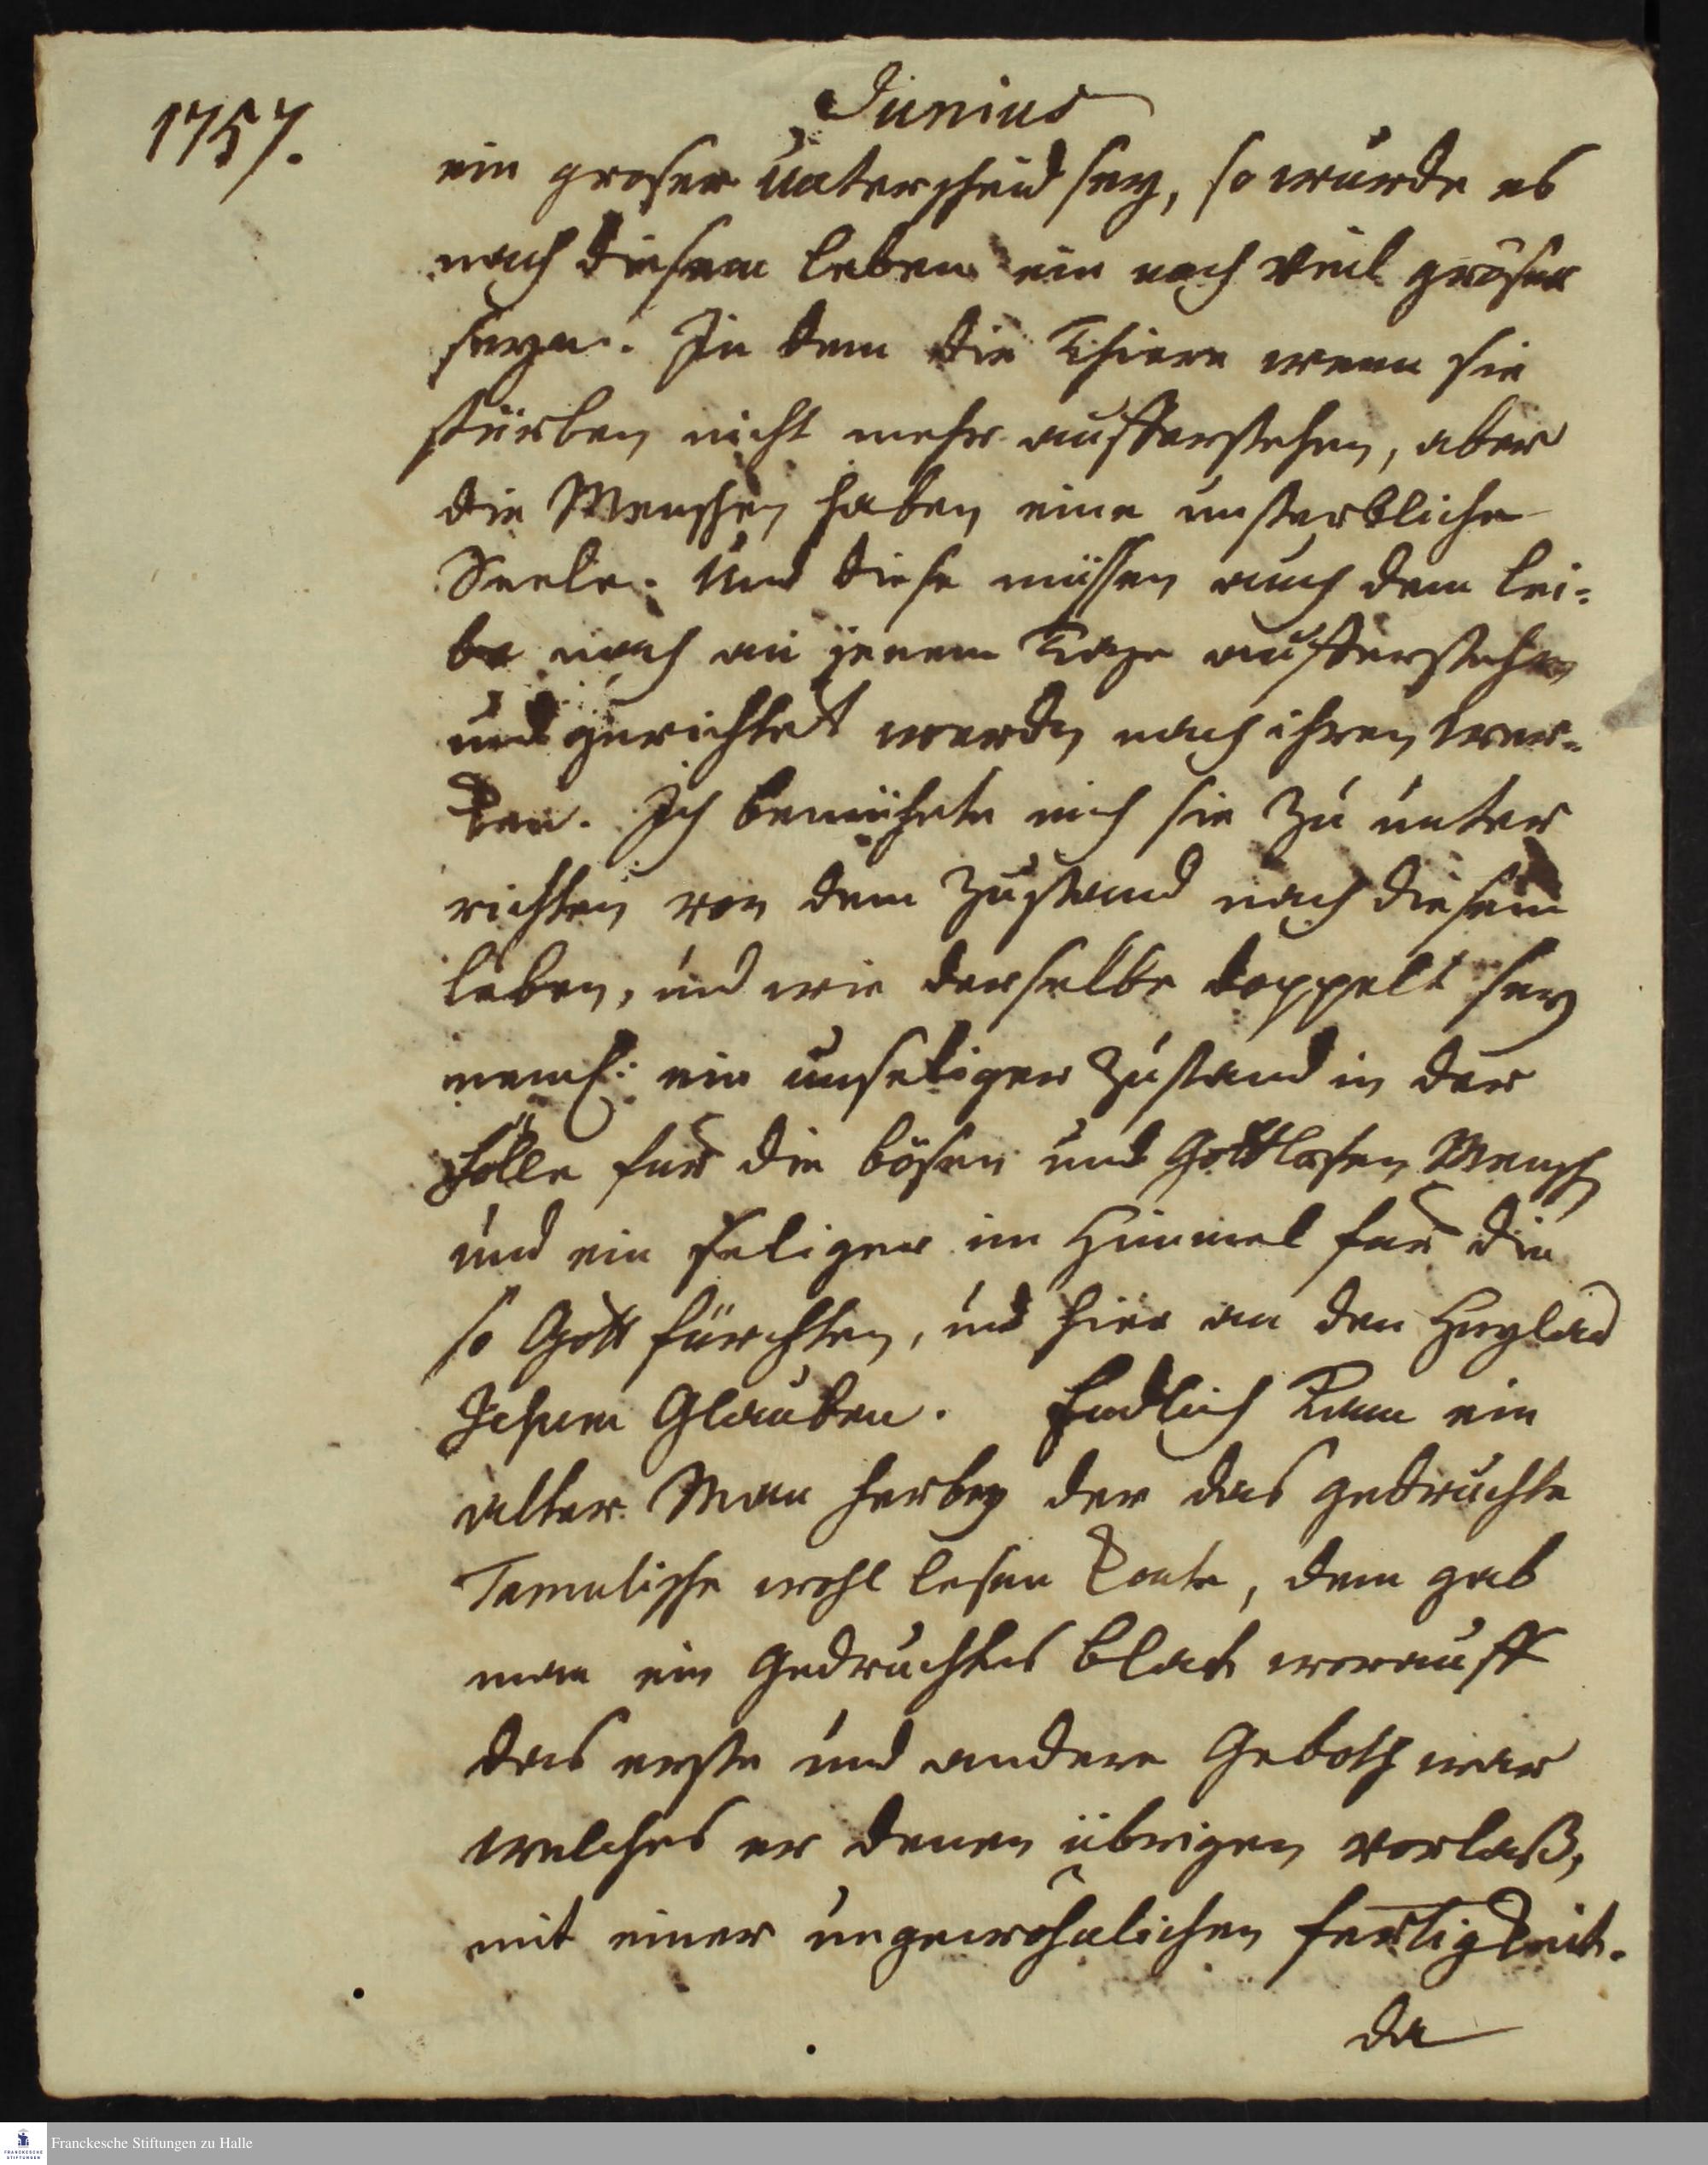 1757.
Junius
ein groser Unterscheid sey, so würde es
nach diesem Leben ein noch viel gröser
seyn. In dem die Thiere wenn sie
stürben nicht mehr aufferstehen, aber
die Menschen haben eine unsterbliche
Seele. Und diese müssen auch dem Lei-
be nach an jenem Tage aufferstehen
und gerichtet werden nach ihren Wer-
ken. Ich bemühete mich sie zu unter
richten von dem Zustand nach diesem
Leben, und wie derselbe doppelt sey
neml: ein unseliger Zustand in der
Hölle für die bösen und Gottlosen Mensch
und ein seliger im Himmel für die
so Gott fürchten, und hier an den Heyland
Jesum Glauben. Endlich kam ein
alter Man herbey der das gedruckte
Tamulische wohl lesen konte, dem gab
man ein Gedrucktes Blat worauff
das erste und andere Geboth war
welches er denen übrigen vorlaß,
mit einer ungewöhnlichen fertigkeit.
da
Franckesche Stiftungen zu Halle
FRANCKESCHE
STIFTUNGEN